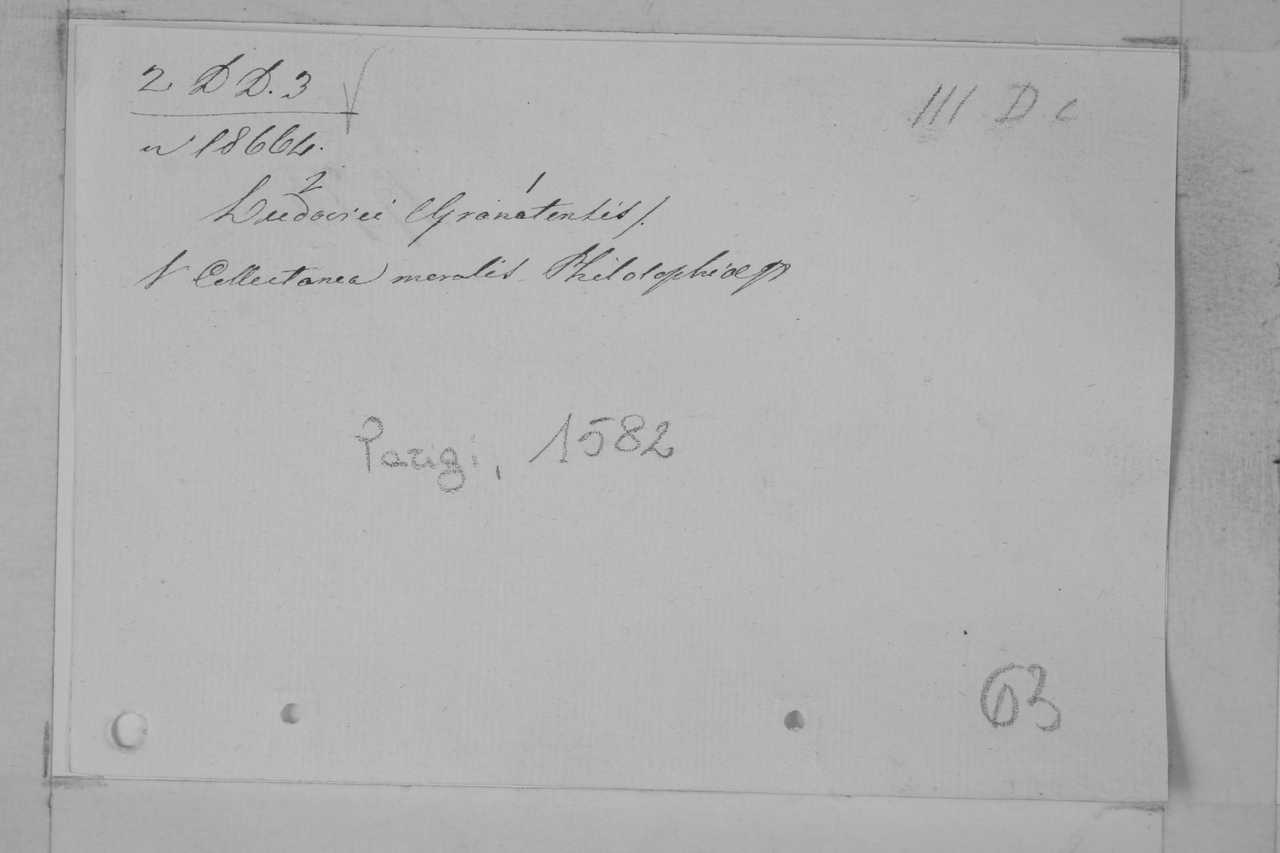 2 D D. 3
III D c
n 18664.
2 1
Ludovici Granatensis/.
Collectanea moralis Philosophiæ
Parigi, 1582
63